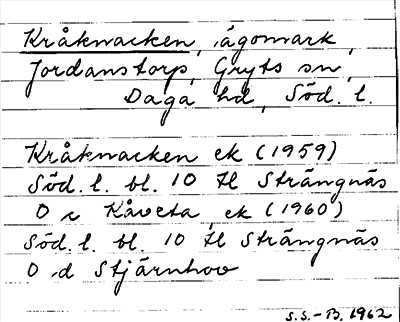 Kråknacken, ägomark,
Jordanstorp, Gryts sn,
Daga hd, Söd. l.
Kråknacken ek (1959)
Söd. l. bl. 10 H Strängnäs
0 c Kåveta, ek (1960)
Söd. l. bl. 10 H Strängnäs
0 d Stjärnhov
S.S.-B. 1962